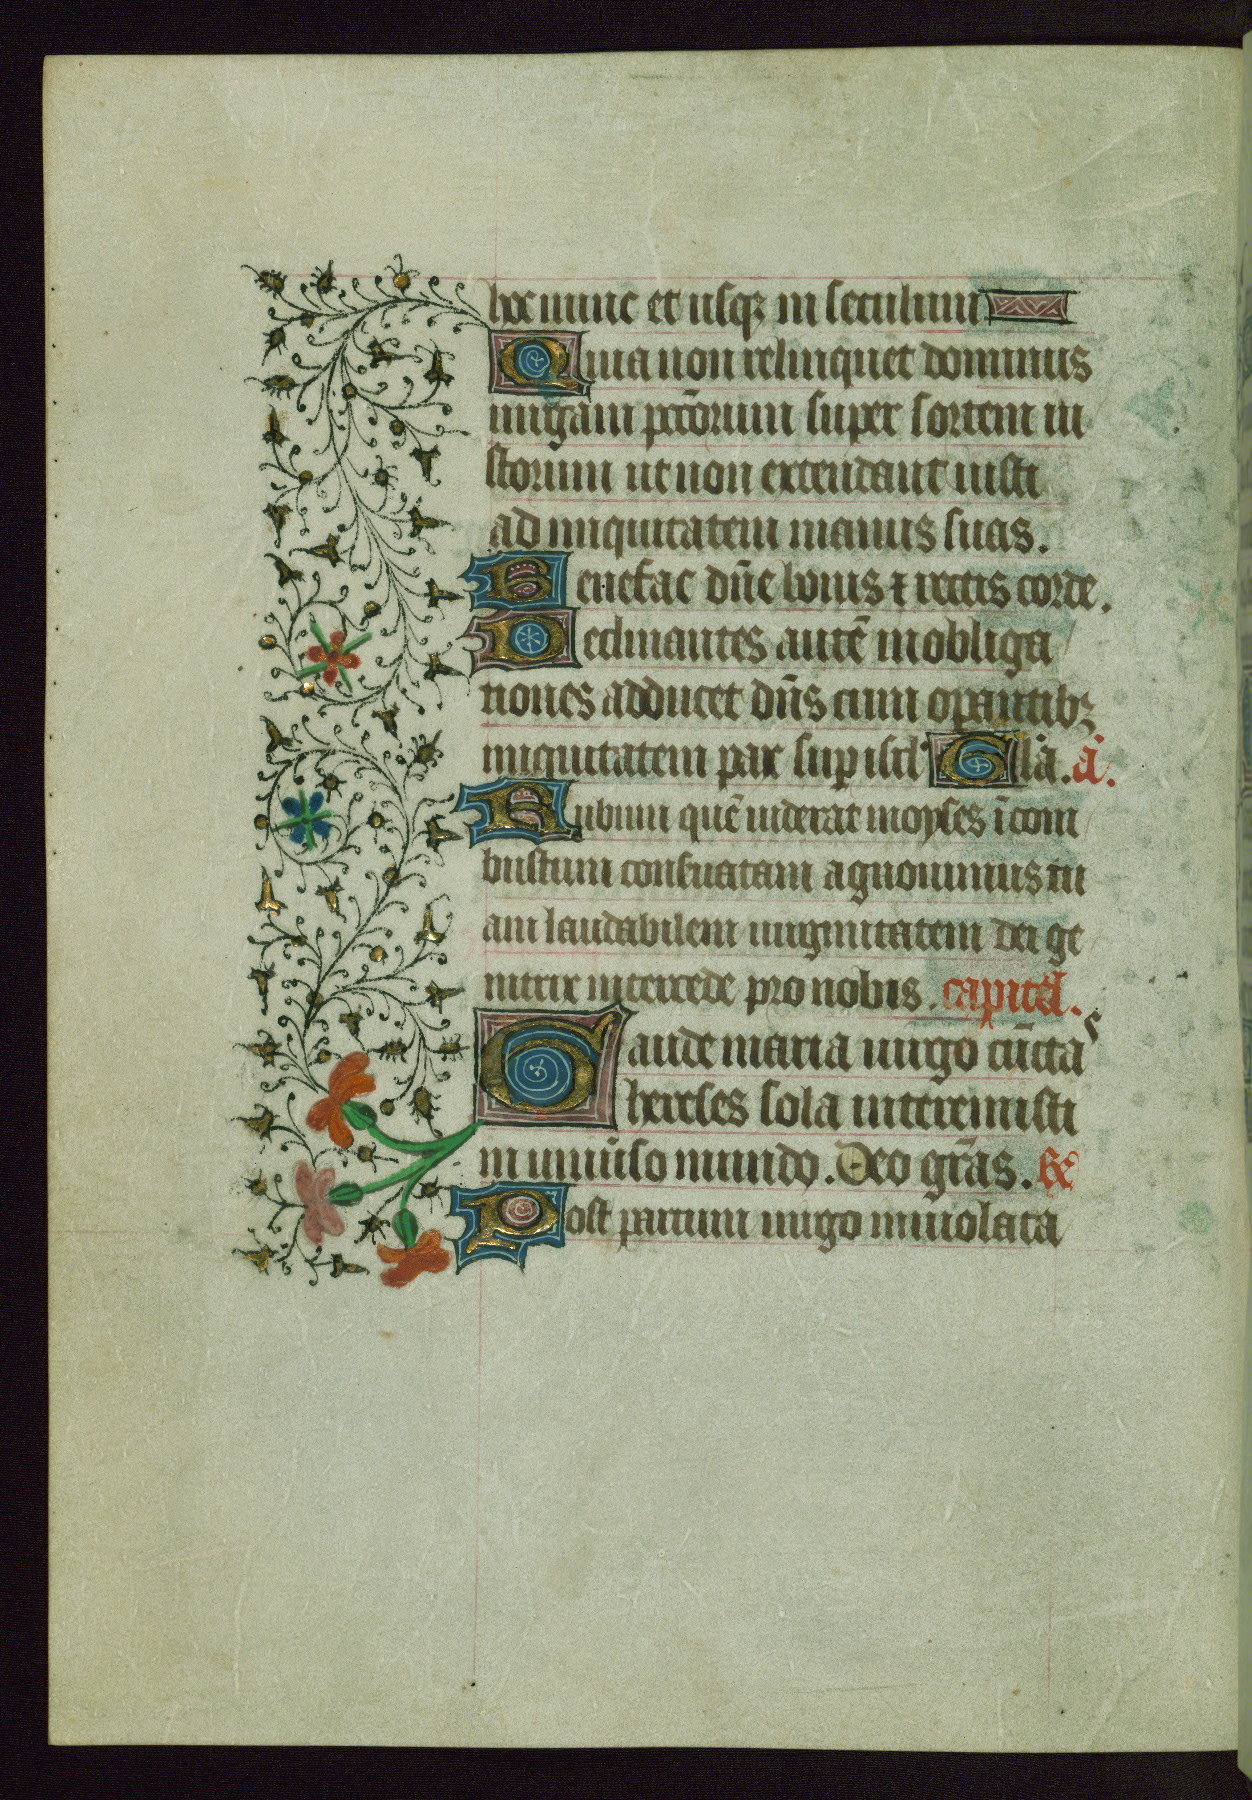 hoc nunc et usqꝫ in seculum
Quia non relinquet dominus
uirgam pctōrum super sortem iu
storum ut non extendant iusti
ad iniquitatem manus suas.
Benefac dn̄e bonis ⁊ rectis corde.
Declinantes autē in obliga
tiones adducet dn̄s cum opantibꝫ
iniquitatem pax sup isrl' Glā. ā.
Rubum quē uiderat moyses īcom
bustum conseruatam agnouimus tu
am laudabilem uirginitatem dei ge
nitrix intercede pro nobis. capitl̄.
Gaude maria uirgo cūcta
hereses sola interemisti
in uniūso mundo. Deo grās. ℟
Post partum uirgo inuiolata